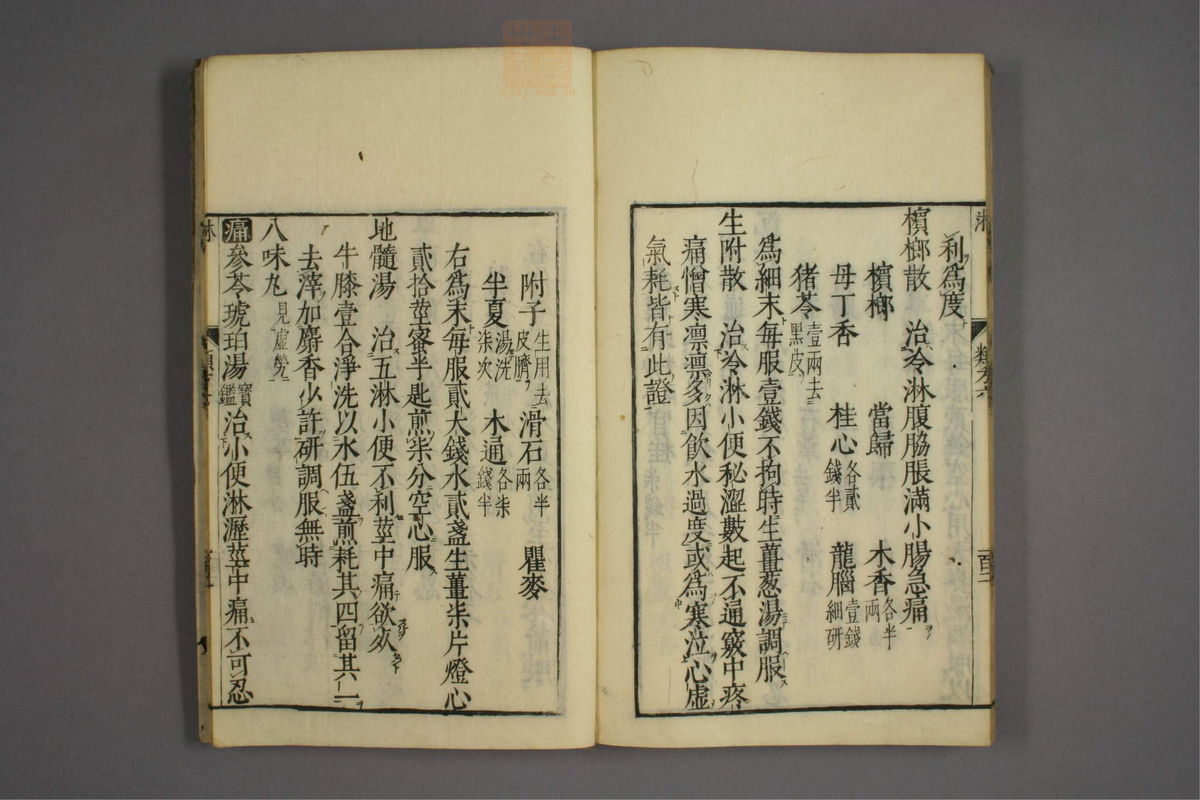 利為度
檳榔散 治冷淋腹脇脹滿小腸急痛
檳榔 當歸 木香各半兩
母丁香 桂心各貳錢半 龍腦壹錢細研
猪苓壹兩去黑皮
為細末每服壹錢不拘時生薑葱湯調服
生附散 治冷淋小便秘澀數起不通竅中疼
痛憎寒凛凛多因飲水過度或為寒泣心虛
氣耗皆有此證
附子生用去皮臍 滑石各半兩 瞿麥
半夏湯洗柒次 木通各柒錢半
右為末每服貳大錢水貳盞生薑柒片燈心
貳拾莖蜜半匙煎柒分空心服
地髓湯 治五淋小便不利莖中痛欲死
牛膝壹合淨洗以水伍盞煎耗其四留其一
去滓加麝香少許研調服無時
八味丸見虛勞
痛參苓琥珀湯寶鑑治小便淋瀝莖中痛不可忍